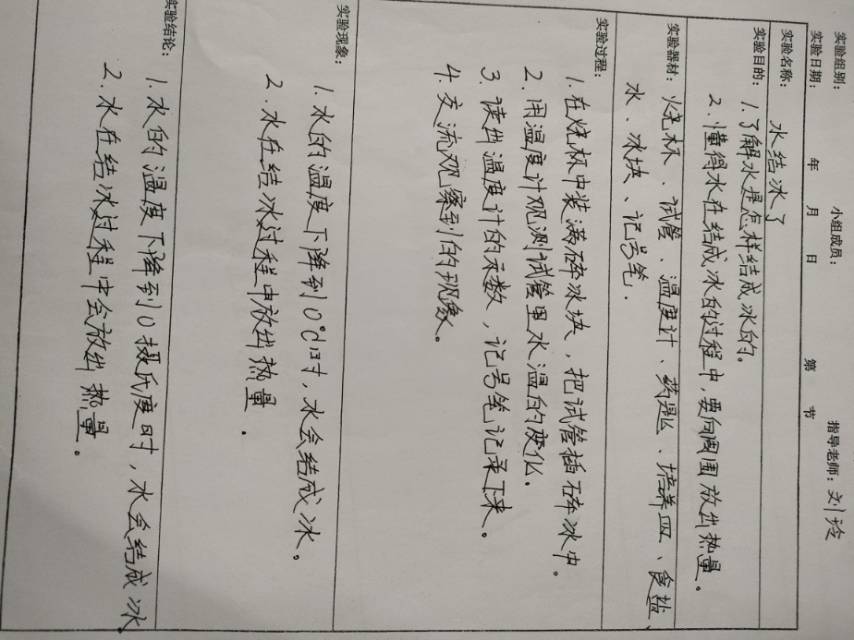 实验组别: 小组成员: 指导老师: 刘玲
实验日期: 年 月 日 第 节
实验名称: 水结冰了
实验目的: 1.了解水是怎样结成冰的。
2.懂得水在结成冰的过程中,要向周围放出热量。
实验器材: 烧杯、试管、温度计、药匙、培养皿、食盐、
水、冰块、记号笔.
实验过程:
1.在烧杯中装满碎冰块,把试管插碎冰中.
2.用温度计观测试管里水温的变化.
3.读出温度计的示数,记号笔记录下来。
4.交流观察到的现象。
实验现象:
1.水的温度下降到0℃时,水会结成冰。
2.水在结冰过程中放出热量.
实验结论:
1.水的温度下降到0摄氏度时,水会结成冰.
2.水在结冰过程中会放出热量。